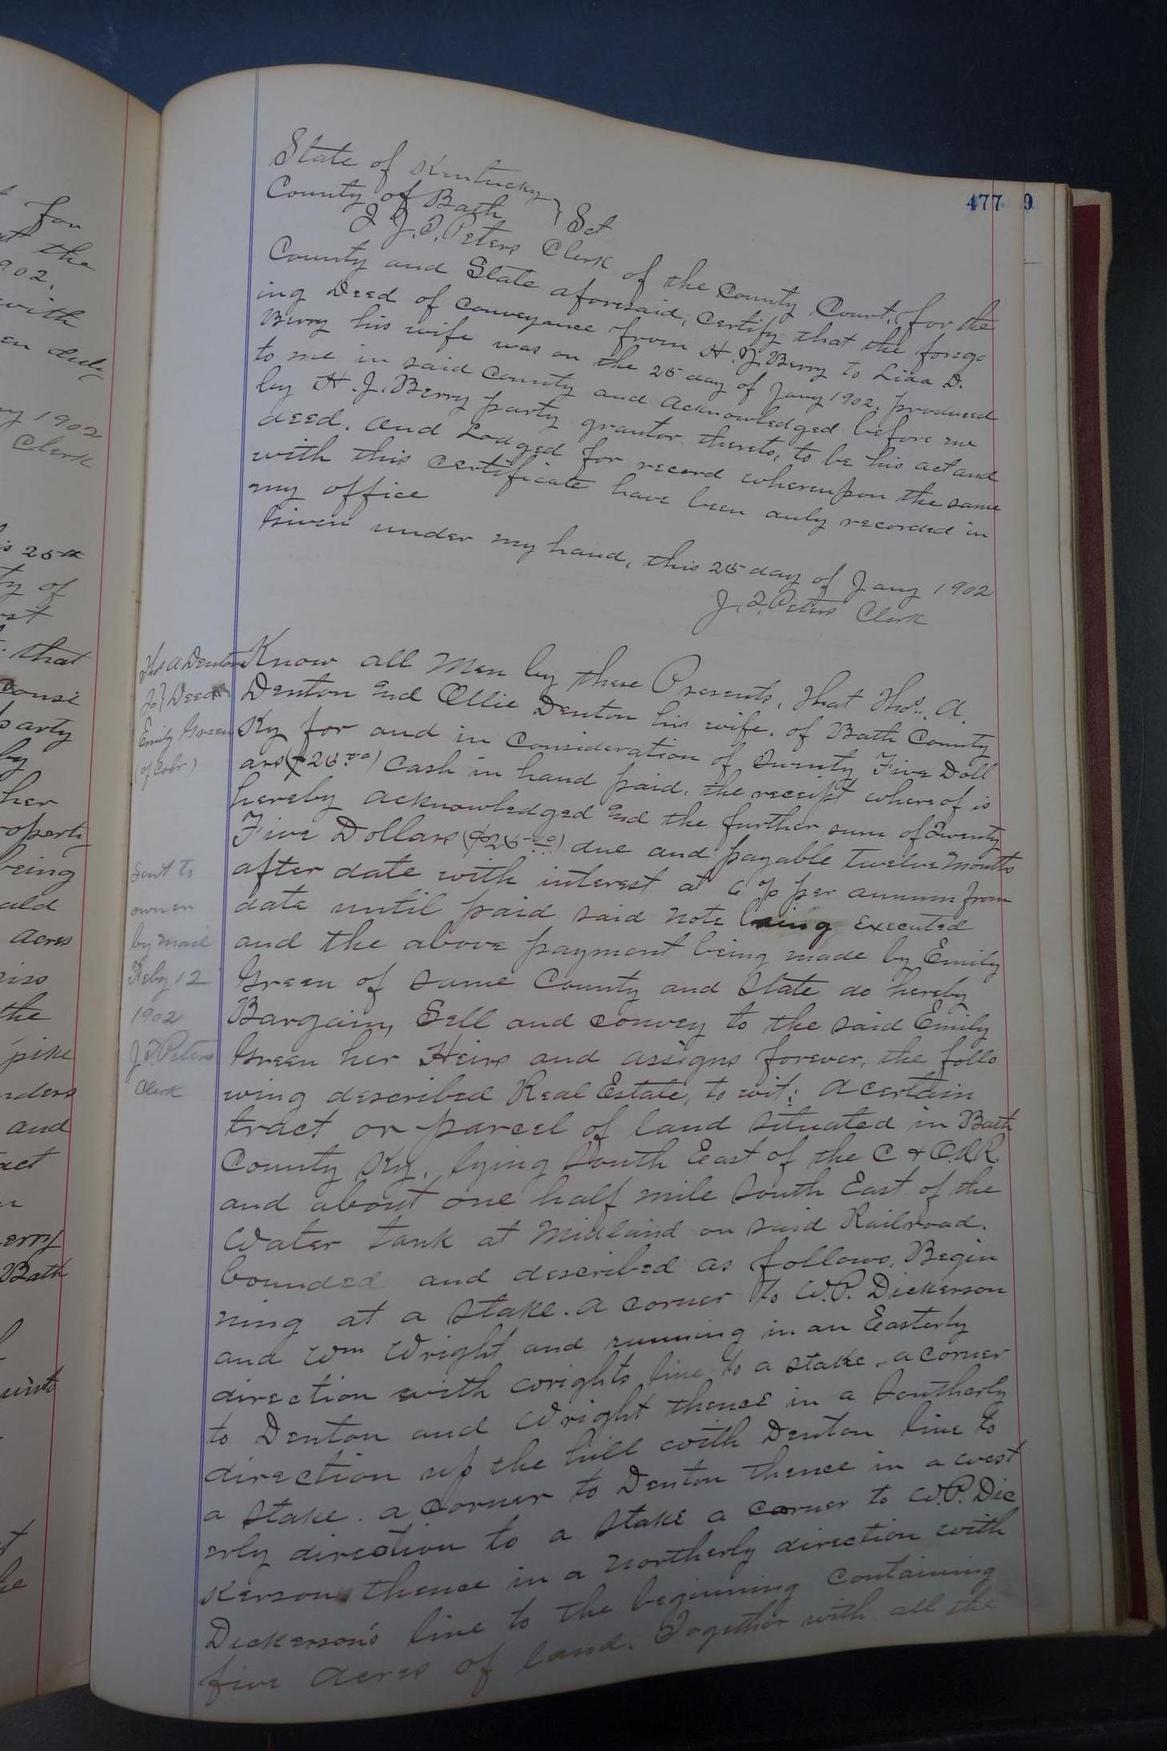 477 9
State of Kentucky
County of Bath } Sct
I J.T. Peters Clerk of the County Court, for the
County and State aforesaid, certify that the forego
ing Deed of conveyance from H. J. Berry to Lida D.
Berry his wife was on the 25 day of Jany 1902, produced
to me in said County and acknowledged before me
by H. J. Berry party grantor thereto, to be his act and
deed. and Lodged for record whereupon the same
with this certificate have been duly recorded in
my office
Given under my hand, this 25 day of Jany 1902
J. T. Peters Clerk
Thos A Denton
To } Deed
Emily Green
(of Colr)
Know all Men by these Presents, That Thos. A.
Denton and Ollie Denton his wife, of Bath County
Ky for and in consideration of Twenty Five Doll
ars ($25.00) Cash in hand paid, the receipt whereof is
hereby acknowledged and the further sum of Twenty
Five Dollars ($25.00) due and payable twelve months
after date with interest at 6 % per annum from
date until paid said note being executed
and the above payment being made by Emily
Green of same County and State do hereby
Bargain, Sell and convey to the said Emily
Green her Heirs and assigns forever, the follo
wing described Real Estate, to wit: A certain
tract or parcel of land situated in Bath
County Ky, lying South East of the C & O.R.R
and about one half mile South East of the
Water tank at Midland on said Railroad.
bounded and described as follows, Begin
ning at a stake. a corner to W.P. Dickerson
and Wm Wright and running in an Easterly
direction with wrights line to a stake, a corner
to Denton and Wright thence in a Southerly
direction up the hill with Denton line to
a stake. a corner to Denton thence in a west
erly direction to a stake a corner to W.P. Dic
kerson, thence in a northerly direction with
Dickerson's line to the beginning containing
five acres of land. Together with all the
Sent to
owner
by mail
Feby 12
1902
J.T. Peters
Clerk
for
the
1902.
with
1902
Clerk
25th
of
that
party
by
her
being
acres
the
pike
and
Bath